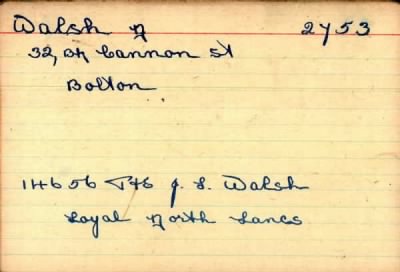 Walsh N 2753
32, Bk Cannon St
Bolton
14656 Pte J. S. Walsh
Loyal North Lancs